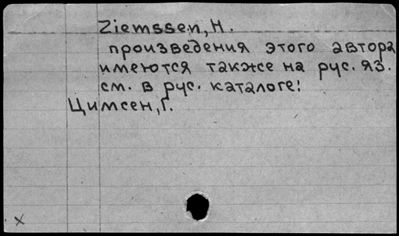 Ziemssen, H.
произведения этого автора
имеются также на рус. яз.
см. в рус. каталоге!
Цимсен, Г.
x